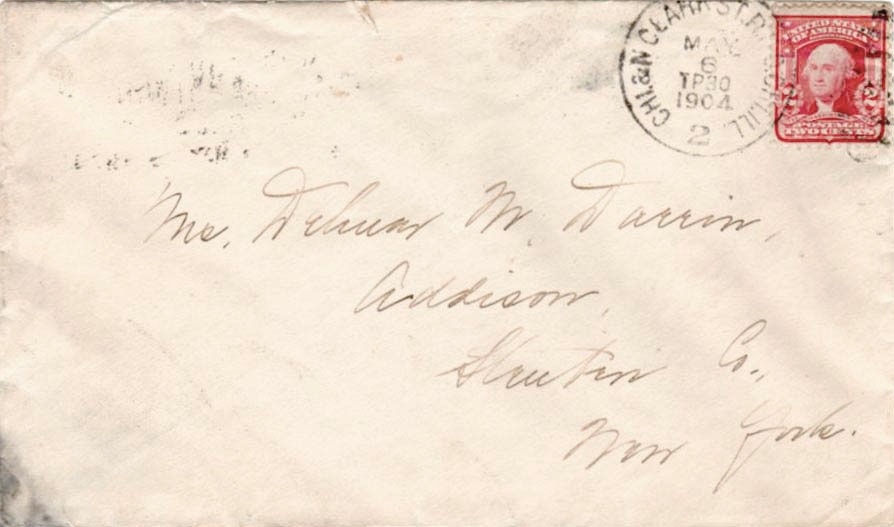 CHI. & N. CLARK ST. R.P.O. ILL.
MAY
6
TP30
1904
2
UNITED STATES
OF AMERICA
POSTAGE
TWO CENTS
Mr. Delmar M. Darrin,
Addison,
Steuben Co.,
New York.